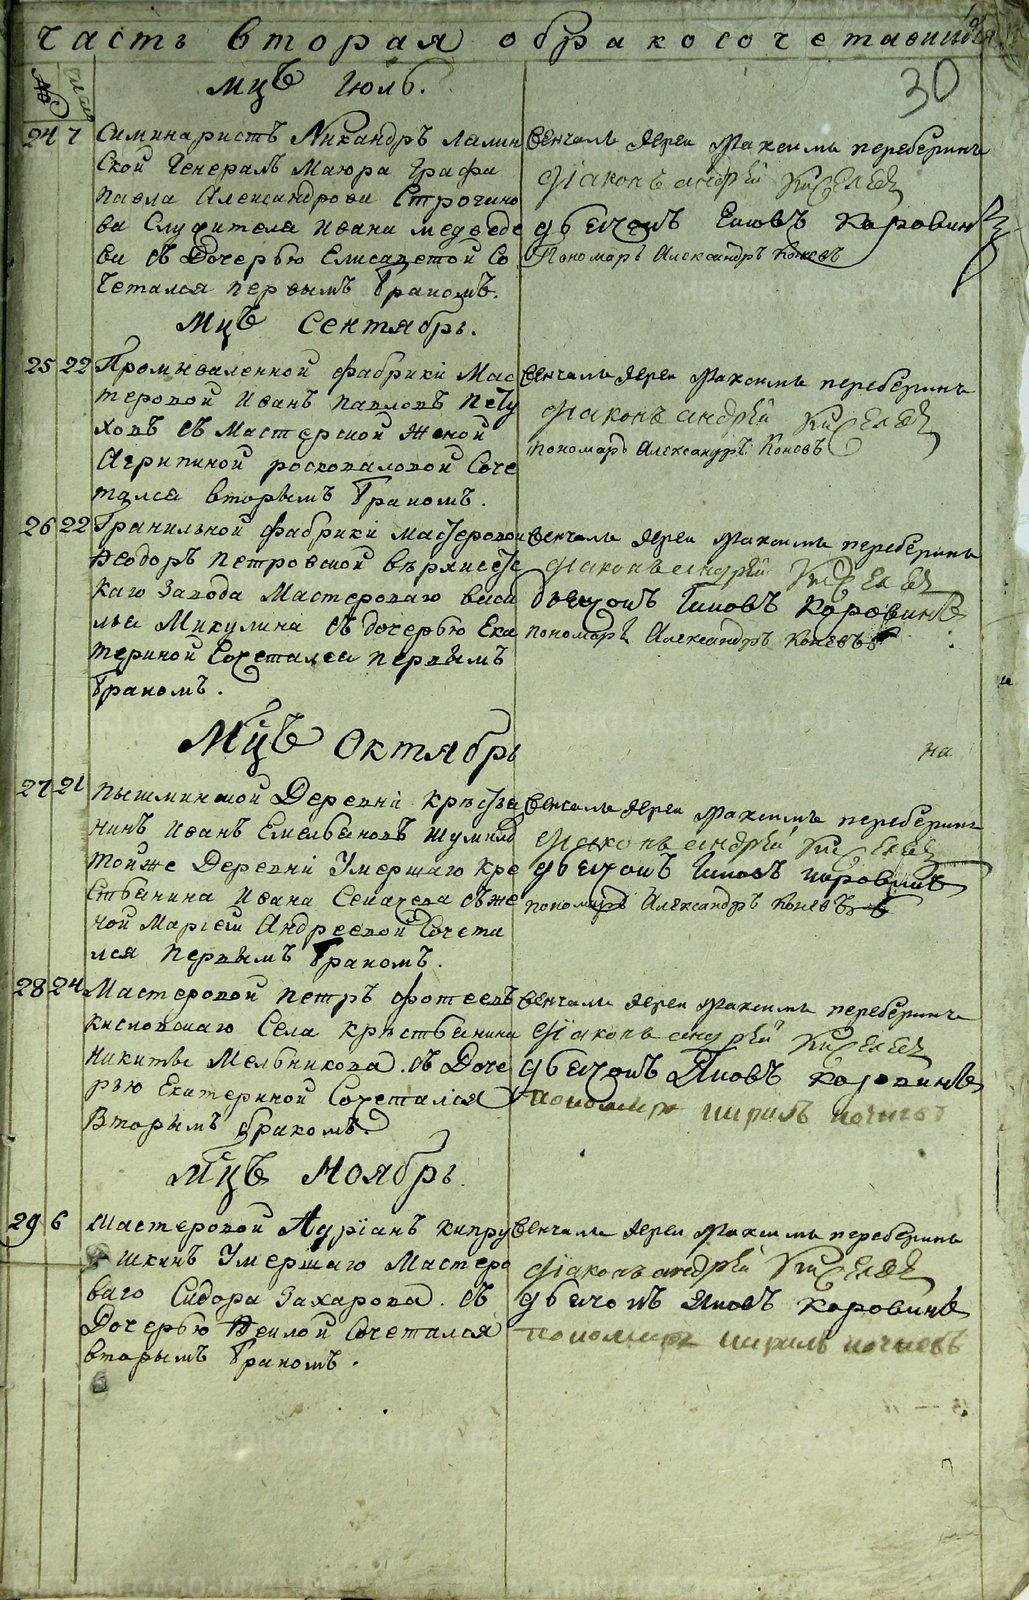 часть вторая обракосочетавшихся
30
мцъ Июль.
24 7 Симинаристъ Никандръ Лалин
ской Генералъ Маиора Графа
Павла Александрова Строгоно
ва Служителя Ивана Медведе
ва съ Дочерью Елисаветой Со
четался первымъ бракомъ.
Венчали Иереи Максимъ переберинъ
Диаконъ андрей Киселев
дьячокъ Яковъ Коровинъ
Пономарь Александръ Коневъ
Мцъ Сентябрь.
25 22 Промываленной фабрики Мас
теровой Иванъ Павловъ Пету
ховъ съ Мастерской Женой
Агрипиной росковаловой Соче
тался вторымъ бракомъ.
Венчали Иереи Максимъ переберинъ
Диаконъ андрей Киселев
пономарь Александръ Коневъ
26 22 Гранильной фабрики мастеровой
Феодоръ Петровской верхисетс
каго Завода Мастероваго Васи
лья Микулина съ дочерью Ека
териной Сочетался первымъ
бракомъ.
Венчали Иереи Максимъ переберинъ
Диаконъ андрей Киселев
дьячокъ Яковъ Коровинъ
пономарь Александръ Коневъ
Мцъ Октябрь
на
27 21 пышминской Деревни крестья
нинъ Иванъ Емельяновъ
тойже Деревни Умершаго кре
стьянина Ивана съ же
ной Марьей Андреевой Сочета
лся первымъ бракомъ.
Венчали Иереи Максимъ переберинъ
Диаконъ андрей Киселев
дьячокъ Яковъ коровинъ
пономарь Александръ Коневъ
28 24 Мастеровой петръ фотеевъ
кисловскаго Села крестьянина
Никиты Мельникова. съ Доче
рью Екатериной Сочетался
Вторымъ бракомъ
Венчали Иереи Максимъ переберинъ
Диаконъ андрей Киселев
дьячокъ Яковъ коровинъ
пономарь кирилъ
Мцъ Ноябрь.
29 6 Мастеровой Адрїанъ кипру
шкинъ Умершаго Мастеро
ваго Сидора Захарова. съ
Дочерью Феклой Сочетался
вторымъ бракомъ.
Венчали Иереи Максимъ переберинъ
Диаконъ андрей Киселев
дьячокъ Яковъ коровинъ
пономарь кирилъ